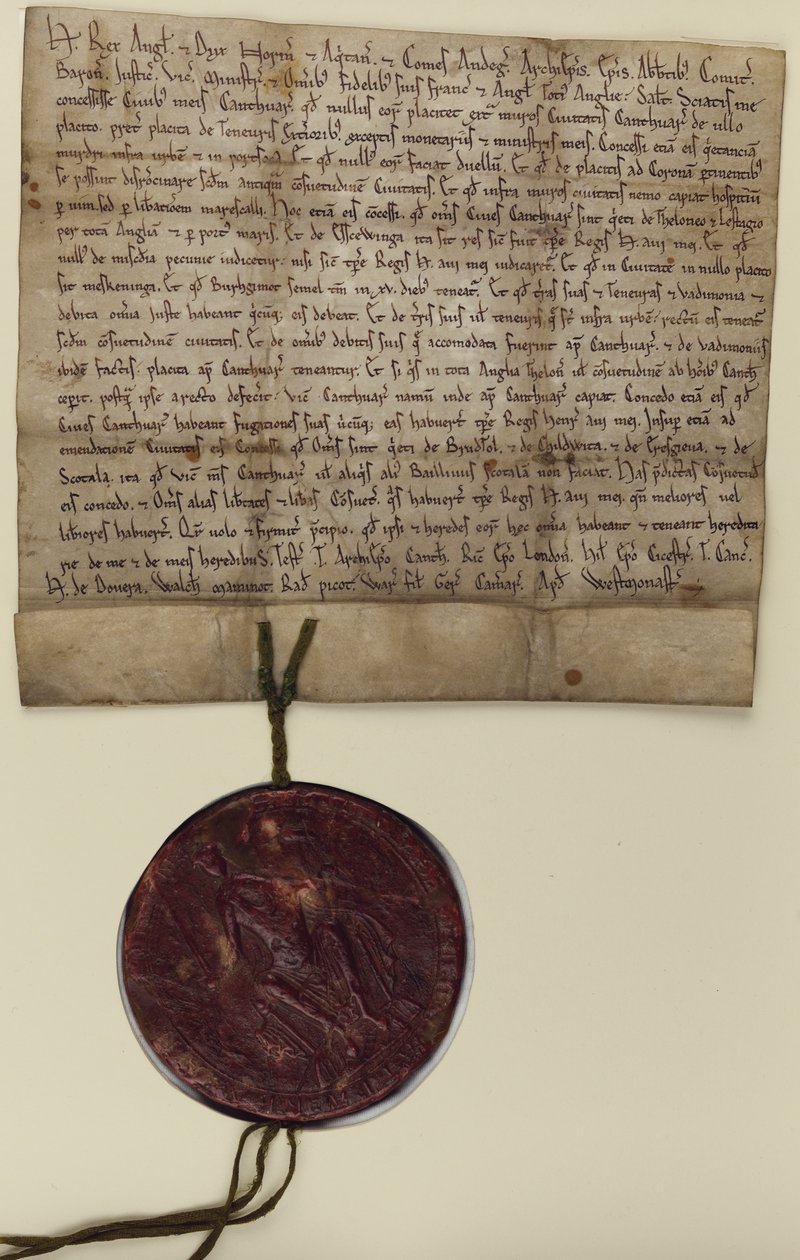 H. Rex Angl. ⁊ Dux Norm̄ ⁊ Aq̇tan̄. ⁊ Comes Andeg̃. Archiep̄is. Ep̄is. Abb̄tibꝫ. Comit̃.
Baron̄. Justic̃. Vic̃. Ministr̃. ⁊ Om̄ibꝫ Fidelibꝫ suis Franc̃ ⁊ Angl̃ Toti' Anglie. Salt̃. Sciatis me
concessisse Civibꝫ meis Cantuar̃. qđ nullus eoꝝ placitet ext̃ muros Civitatis Cantuar̃ de ullo
placito. pret̃ placita de Teneuris Ext̃ioribꝫ. exceptis monetariis ⁊ ministris meis. Concessi etiā eis q̇etanciā
murdri infra urbē ⁊ in portsoca. Et qđ nullꝰ eoꝝ faciat duellū. Et qđ de placitis ad Coronā ꝑtinentibꝫ
se possint disr̃ocinare scđm antiquā cōsuetudinē Civitatis. Et qđ infra muros civitatis nemo capiat hospitiū
ꝑ vim. sed ꝑ lib̃atiōem marescalli. Hoc etiam eis cōcessi. qđ om̄s Cives Cantuar̃ sint q̇eti de Theloneo ⁊ Lestagio
per totā Angliā ⁊ ꝑ port' maris. Et de Essewinga ita sit res sic̃ fuit tp̄re Regis H. avi mei. Et qđ
nullꝰ de mis̃cđia pecunie iudicetur. nisi sic̃ tp̄re Regis H. avi mei iudicaret̃. Et qđ in Civitate in nullo placito
sit meskeninga. Et qđ Burhgimot semel tm̄ in .xv. diebꝫ teneat̃. Et qđ t̃ras suas ⁊ Teneuras ⁊ vadimonia ⁊
debita om̄ia juste habeant q̇cūqꝫ eis debeat. Et de t̃ris suis ul̃ teneuris q̃ st̄ infra urbē. rectū eis teneat̃
scđm cōsuetudinē civitatis. Et de om̄ibꝫ debitis suis q̃ accomodata fuerint ap̄ Cantuar̃. ⁊ de vadimoniis
ibidē factis. placita ap̄ Cantuar̃ teneantur. Et si q̇s in tota Anglia Thelon̄ ul̃ cōsuetudinē ab hōibꝫ Canth̃
ceꝑit. postq̃ ipse a recto defec̃it. vic̃ Cantuar̃ namū inde ap̄ Cantuar̃ capiat. Concedo etiā eis qđ
Cives Cantuar̃ habeant Fugationes suas u̇cūqꝫ eas habuer̃t tp̄re Regis Henr̃ avi mei. Insuꝑ etiā ad
emendationē Civitatis eis Concessi qđ Om̄s sint q̇eti de Brudtol. ⁊ de Childwita. ⁊ de Gresgieva. ⁊ de
Scotala. ita qđ vic̃ m̄s Cantuar̃ ul̃ aliq̇s ali' Baillivus scotalā non faciat. Has p̄dictas Cōsuetuđ
eis concedo. ⁊ Om̄s alias lib̃tates ⁊ lib̃as Cōsuet̃. q̃s habuer̃t tp̄re Regis H. avi mei. qn̄ meliores vel
lib̃iores habuer̃t. Q̃r volo ⁊ firmit̃ p̄cipio. qđ ipsi ⁊ heredes eoꝝ hec om̄ia habeant ⁊ teneant heredita
rie de me ⁊ de meis heredibus. Test̃. T. Archiep̄o Canth̃. Ric̃ Ep̄o London̄. Hil̃ Ep̄o Cicestr̃. T. Canc̃.
H. de Dovera. Walch̃ maminot. Rađ picot. War̃ fil̃ Ger̃ Cam̃ar̃. Apđ Westmonast̃